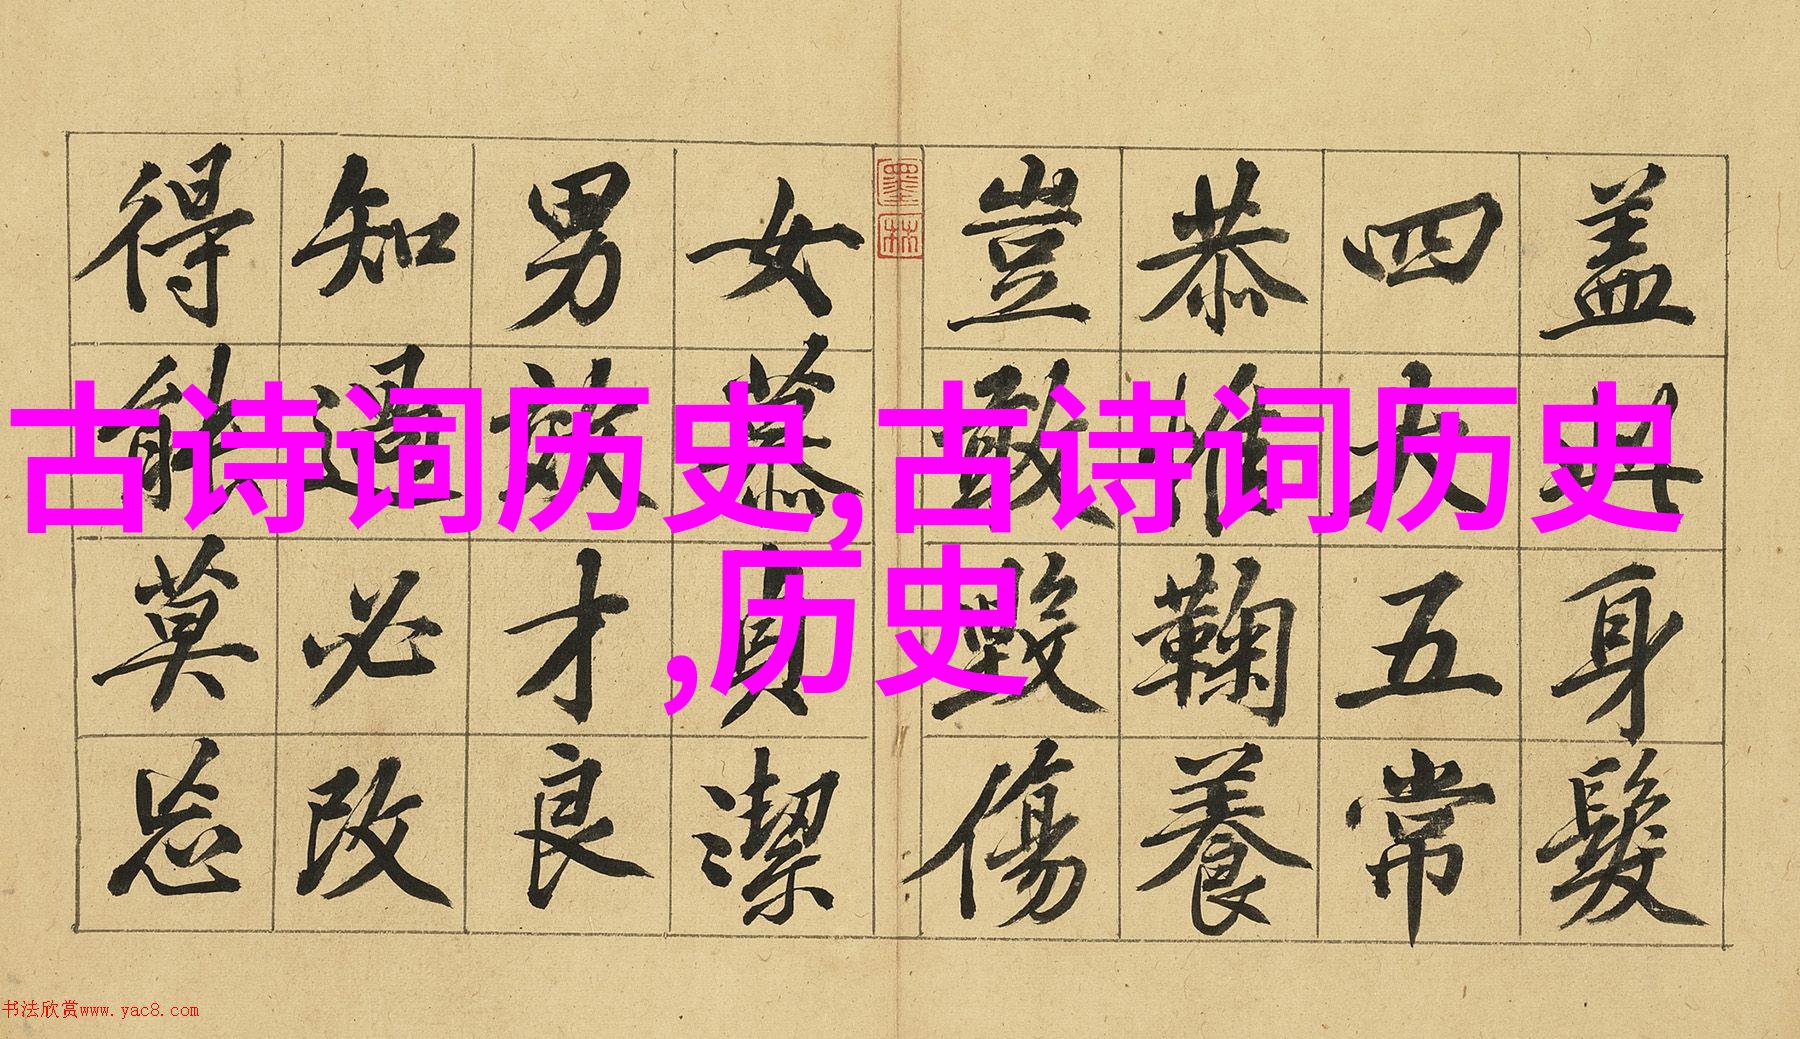 古诗词历史,古诗词历史
,历史
盖此身髮
四大五常
恭惟鞠養
豈敢毀傷
墨林
女慕貞潔
男效才良
知過必改
得能莫忘
书法欣赏www.yac8.com